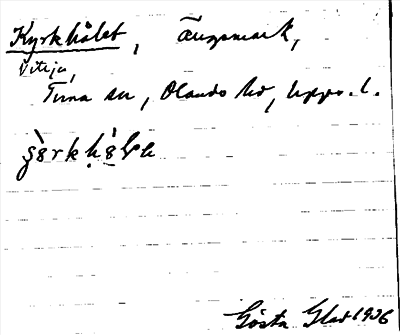 Kyrkhålet, Ängsmark,
Viteja,
Tuna sn, Olands hd, Upps. l.
Gösta Glad 1936